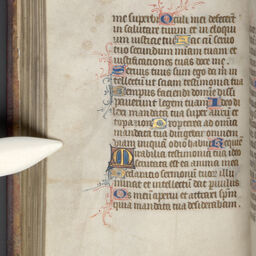 me superbi Oculi mei defecerūt
in salutare tuum et in eloqui
um iusticie tue Fac cū seruo
tuo secundum m̄iam tuam et
iustificationes tuas doce me
Seruus tuus sum ego da m̄ in
tellectū ut sciam testimonia tua
Tempus faciendi domine dissi
pauerunt legem tuam Ideo di
lexi mandata tua super aurū et
topazion Propterea ad omnia
mandata tua dirigebar omnem
uiam iniquā odio habui
Mirabilia testimonia tua ideo
scrutata est ea anima mea
Declaratio sermonū tuor̄ illu
minat et intellectū dat paruulis
Os meū aperui et attraxi spm̄
quia mandata tua desiderabam